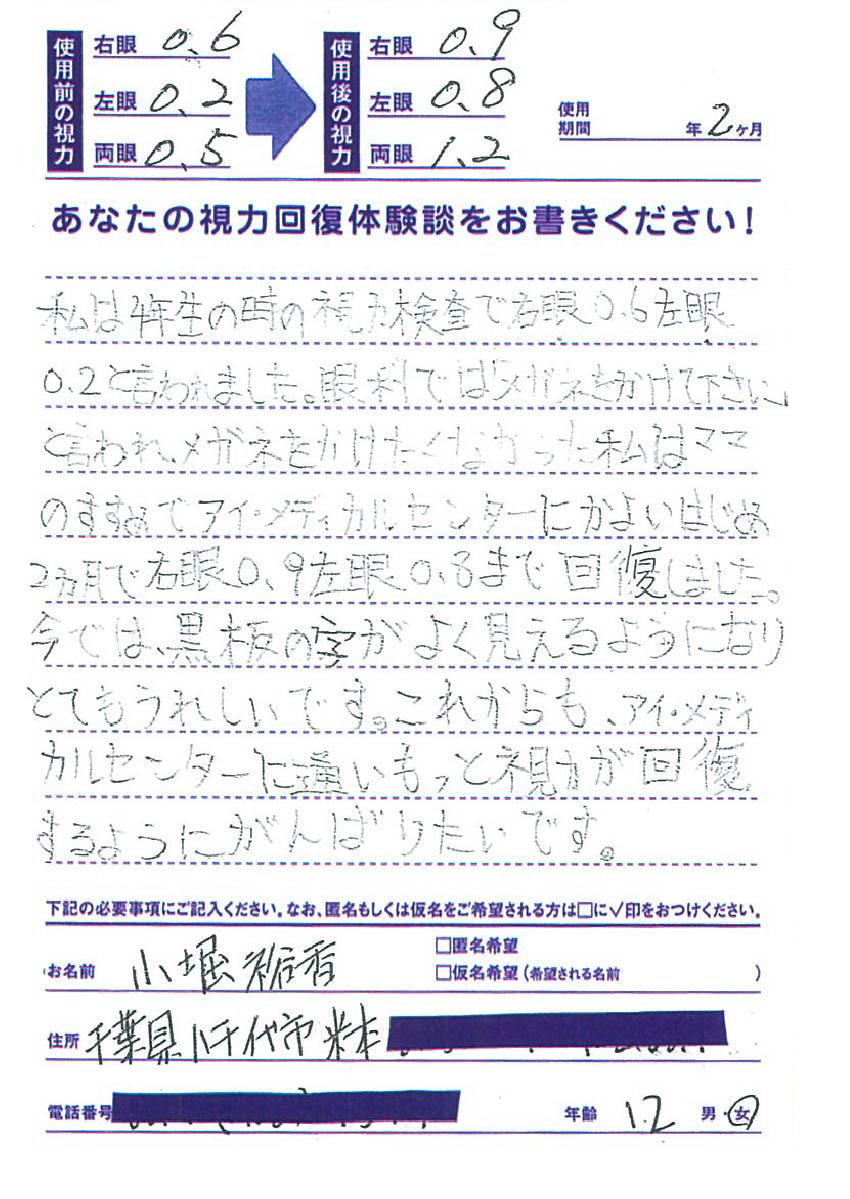 使用前の視力
右眼 0.6
左眼 0.2
両眼 0.5
使用後の視力
右眼 0.9
左眼 0.8
両眼 1.2
使用期間 年 2ヶ月
あなたの視力回復体験談をお書きください！
私は4年生の時の視力検査で右眼0.6左眼
0.2と言われました。眼科ではメガネをかけて下さい
と言われ、メガネをかけたくなかった私はママ
のすすめでアイ・メディカルセンターにかよいはじめ
2カ月で右眼0.9左眼0.8まで回復しました。
今では、黒板の字がよく見えるようになり
とてもうれしいです。これからも、アイ・メディ
カルセンターに通いもっと視力が回復
するようにがんばりたいです。
下記の必要事項にご記入ください。なお、匿名もしくは仮名をご希望される方は□に√印をおつけください。
お名前 小堀裕香
□匿名希望
□仮名希望（希望される名前 ）
住所 千葉県八千代市米本
電話番号
年齢 12 男・女